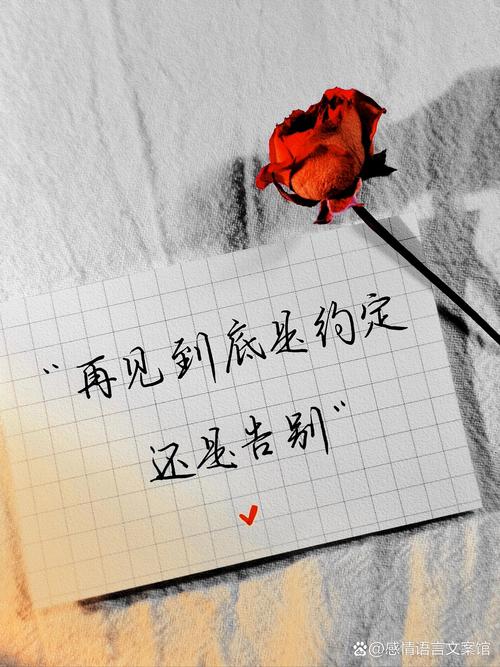 “再见到底是约定
还是告别”
@感情语言文案馆